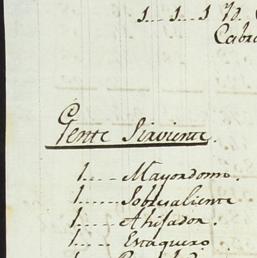 1.....1.....1
Gente Sirviente.
1.....Mayordomo.
1.....Sobresaliente
1.....Ahijador.
1.....Estaquero
1